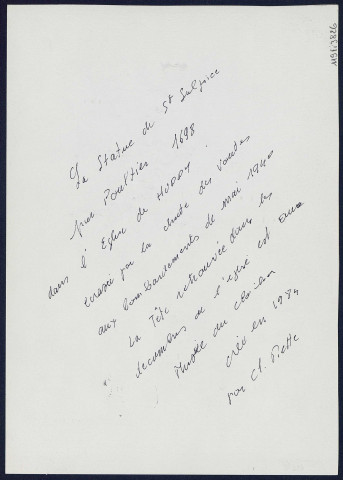 La Statue de St Sulpice
par Poultier 1698
dans l'Eglise de HUPPY,
écrasée par la chute des voutes
aux bombardements de mai 1940
La Tête retrouvée dans les
decombres de l'eglise est au
Musée du
créé en 1984
par Cl. Piette
119Fi3826